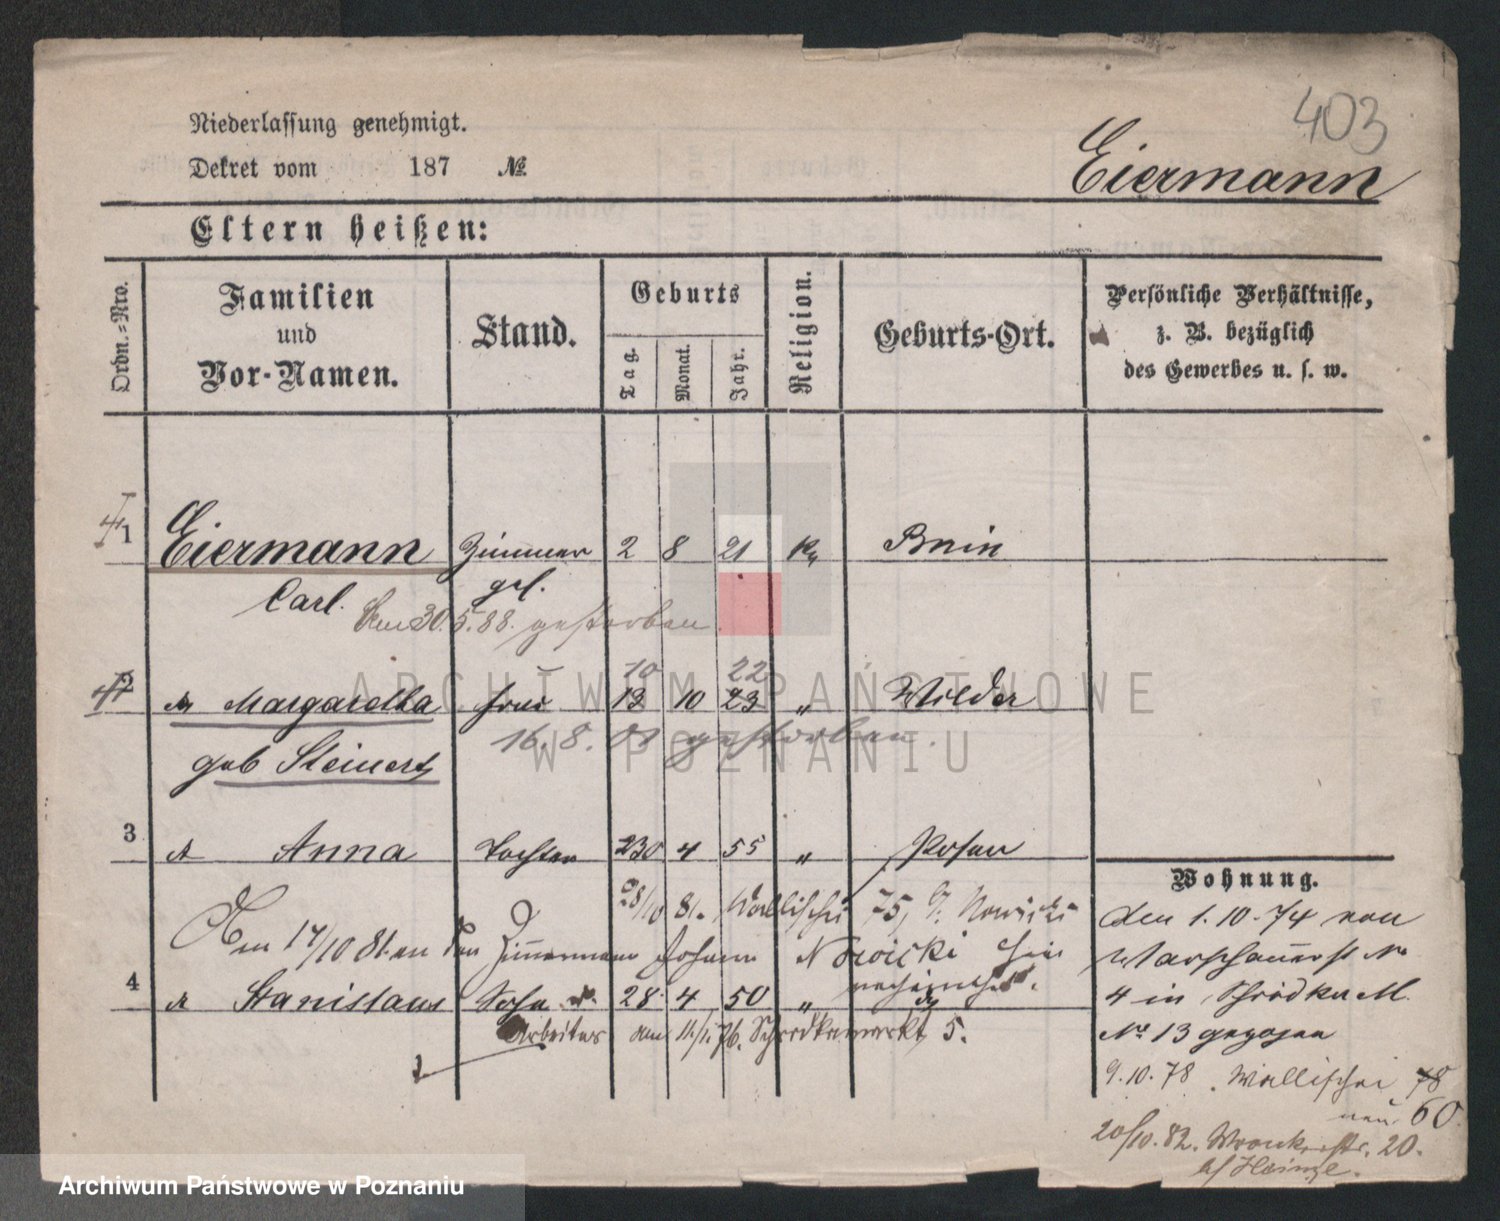 403
Niederlassung genehmigt.
Dekret vom 187 №
Eiermann
Eltern heißen:
Ordn.-Nro.
Familien
und
Vor-Namen.
Stand.
Geburts
Tag.
Monat.
Jahr.
Religion.
Geburts-Ort.
Persönliche Verhältnisse,
z. B. bezüglich
des Gewerbes u. s. w.
1 Eiermann Zimmer 2 8 21 Bnin
Carl. gesl.
30.5.88. gestorben
10 22
2 Margaretha Frau 13 10 23 " Wilder
16. 8. 01 gestorben.
geb Steinert
3 Anna Tochter 230 4 55 " Posen
Wohnung.
28/10 81. Wallischei 75, Nowicki
Am 17/10 81. an den Zimmermann Johann Nowicki hier
verheirathet.
4 Stanislaus Sohn 28. 4 50 "
Arbeiter am 11/1. 76. Schrodkamarkt 5.
den 1. 10. 74 von
Warschauerst No
4 in Schrodka M.
No 13 gezogen
9. 10. 78 Wallischei 78
neu 60
20/10. 82. Wronkerstr. 20.
bf Heinze.
ARCHIWUM PAŃSTWOWE
W POZNANIU
Archiwum Państwowe w Poznaniu